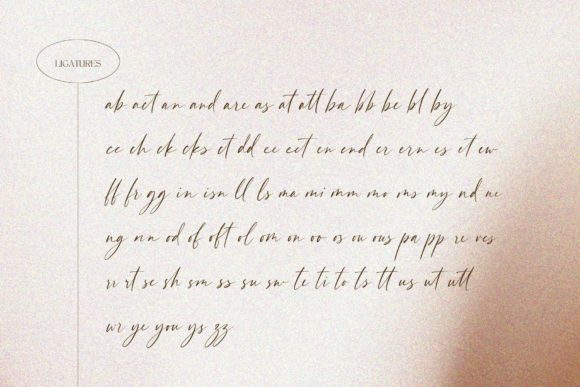 LIGATURES
ab act an and are as at att ba bb be bl by
cc ch ck cks ct dd ee eet en end er ern es et ew
ff fr gg in isn ll ls ma mi mm mo ms my nd ne
ng nn od of oft ol om on oo os ou ous pa pp re res
ri rt se sh sm ss su sw te ti to ts tt us ut utt
wr ye you ys zz